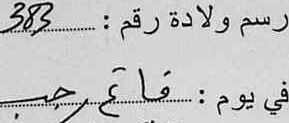 رسم ولادة رقم : 383
في يوم : فاتح رجب